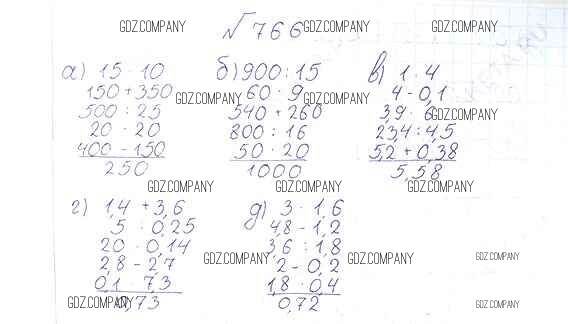 GDZ.COMPANY GDZ.COMPANY GDZ.COMPANY
№ 766
а) 15 · 10
150 + 350
500 : 25
20 · 20
400 - 150
250
б) 900 : 15
60 · 9
540 + 260
800 : 16
50 · 20
1000
в) 1 · 4
4 - 0,1
3,9 · 6
23,4 : 4,5
5,2 + 0,38
5,58
GDZ.COMPANY GDZ.COMPANY
GDZ.COMPANY
GDZ.COMPANY GDZ.COMPANY GDZ.COMPANY
г) 1,4 + 3,6
5 : 0,25
20 · 0,14
2,8 - 2,7
0,1 · 7,3
0,73
д) 3 · 1,6
4,8 - 1,2
3,6 : 1,8
2 - 0,2
1,8 · 0,4
0,72
GDZ.COMPANY GDZ.COMPANY GDZ.COMPANY
GDZ.COMPANY GDZ.COMPANY